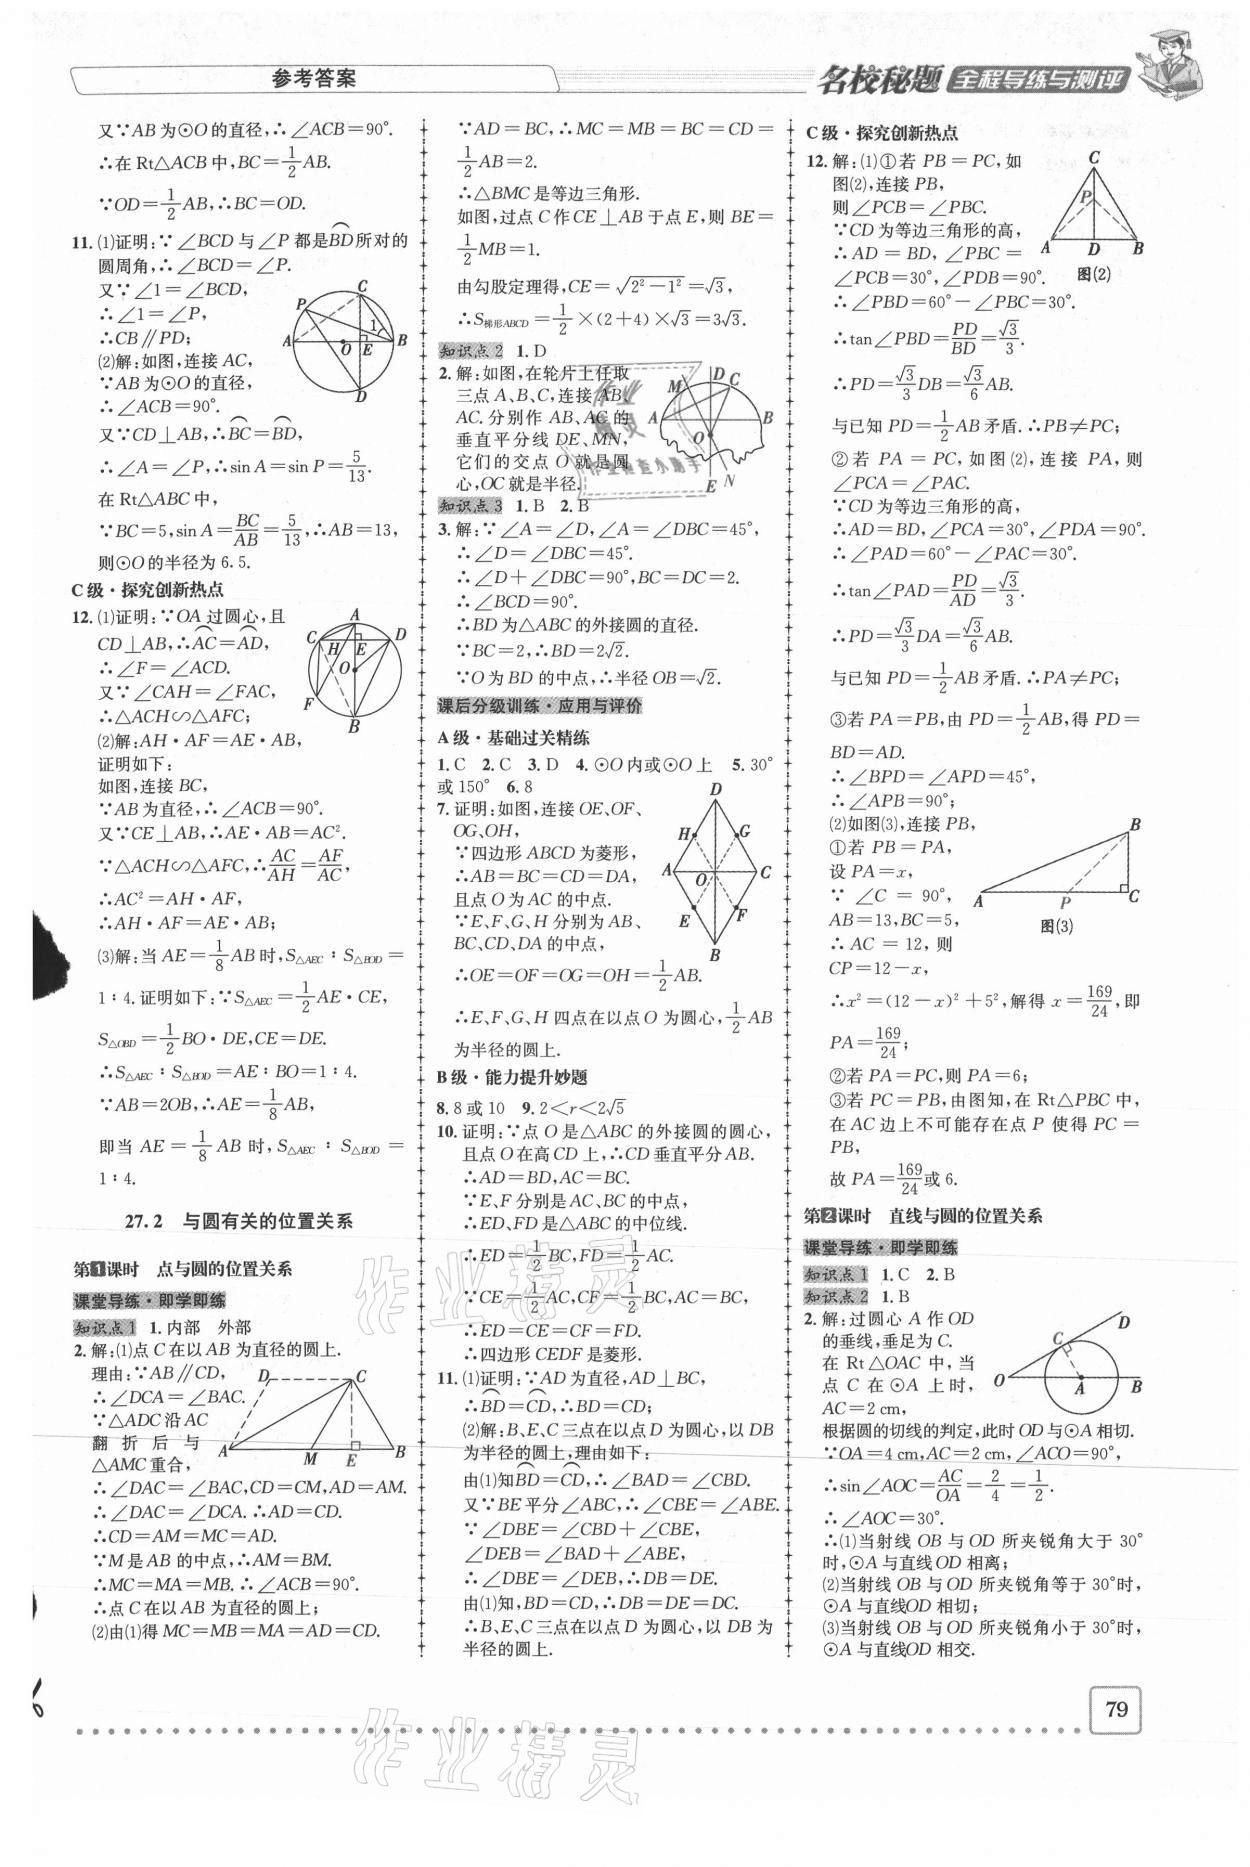 参考答案
名校秘题 全程导练与测评
又∵AB为⊙O的直径,∴∠ACB=90°.
∴在Rt△ACB中,BC=1/2AB.
∵OD=1/2AB,∴BC=OD.
11.(1)证明:∵∠BCD与∠P都是BD⌒所对的
圆周角,∴∠BCD=∠P.
又∵∠1=∠BCD,
∴∠1=∠P,
∴CB∥PD;
(2)解:如图,连接AC,
∵AB为⊙O的直径,
∴∠ACB=90°.
又∵CD⊥AB,∴BC⌒=BD⌒,
∴∠A=∠P,∴sin A=sin P=5/13.
在Rt△ABC中,
∵BC=5,sin A=BC/AB=5/13,∴AB=13,
则⊙O的半径为6.5.
C级·探究创新热点
12.(1)证明:∵OA过圆心,且
CD⊥AB,∴AC⌒=AD⌒,
∴∠F=∠ACD.
又∵∠CAH=∠FAC,
∴△ACH∽△AFC;
(2)解:AH·AF=AE·AB,
证明如下:
如图,连接BC,
∵AB为直径,∴∠ACB=90°.
又∵CE⊥AB,∴AE·AB=AC².
∵△ACH∽△AFC,∴AC/AH=AF/AC,
∴AC²=AH·AF,
∴AH·AF=AE·AB;
(3)解:当AE=1/8AB时,S△AEC∶S△BOD=
1∶4.证明如下:∵S△AEC=1/2AE·CE,
S△OBD=1/2BO·DE,CE=DE.
∴S△AEC∶S△BOD=AE∶BO=1∶4.
∵AB=2OB,∴AE=1/8AB,
即当AE=1/8AB时,S△AEC∶S△BOD=
1∶4.
27.2 与圆有关的位置关系
第1课时 点与圆的位置关系
课堂导练·即学即练
知识点1 1.内部 外部
2.解:(1)点C在以AB为直径的圆上.
理由:∵AB∥CD,
∴∠DCA=∠BAC.
∵△ADC沿AC
翻折后与
△AMC重合,
∴∠DAC=∠BAC,CD=CM,AD=AM.
∴∠DAC=∠DCA.∴AD=CD.
∴CD=AM=MC=AD.
∵M是AB的中点,∴AM=BM.
∴MC=MA=MB.∴∠ACB=90°.
∴点C在以AB为直径的圆上;
(2)由(1)得MC=MB=MA=AD=CD.
∵AD=BC,∴MC=MB=BC=CD=
1/2AB=2.
∴△BMC是等边三角形.
如图,过点C作CE⊥AB于点E,则BE=
1/2MB=1.
由勾股定理得,CE=√(2²-1²)=√3,
∴S梯形ABCD=1/2×(2+4)×√3=3√3.
知识点2 1.D
2.解:如图,在轮片上任取
三点A、B、C,连接AB、
AC.分别作AB、AC的
垂直平分线DE、MN,
它们的交点O就是圆
心,OC就是半径.
知识点3 1.B 2.B
3.解:∵∠A=∠D,∠A=∠DBC=45°,
∴∠D=∠DBC=45°.
∴∠D+∠DBC=90°,BC=DC=2.
∴∠BCD=90°.
∴BD为△ABC的外接圆的直径.
∵BC=2,∴BD=2√2.
∵O为BD的中点,∴半径OB=√2.
课后分级训练·应用与评价
A级·基础过关精练
1.C 2.C 3.D 4.⊙O内或⊙O上 5.30°
或150° 6.8
7.证明:如图,连接OE、OF、
OG、OH,
∵四边形ABCD为菱形,
∴AB=BC=CD=DA,
且点O为AC的中点.
∵E、F、G、H分别为AB、
BC、CD、DA的中点,
∴OE=OF=OG=OH=1/2AB.
∴E、F、G、H四点在以点O为圆心,1/2AB
为半径的圆上.
B级·能力提升妙题
8.8或10 9.2<r<2√5
10.证明:∵点O是△ABC的外接圆的圆心,
且点O在高CD上,∴CD垂直平分AB.
∴AD=BD,AC=BC.
∵E、F分别是AC、BC的中点,
∴ED、FD是△ABC的中位线.
∴ED=1/2BC,FD=1/2AC.
∵CE=1/2AC,CF=1/2BC,AC=BC,
∴ED=CE=CF=FD.
∴四边形CEDF是菱形.
11.(1)证明:∵AD为直径,AD⊥BC,
∴BD⌒=CD⌒,∴BD=CD;
(2)解:B、E、C三点在以点D为圆心,以DB
为半径的圆上,理由如下:
由(1)知BD⌒=CD⌒,∴∠BAD=∠CBD.
又∵BE平分∠ABC,∴∠CBE=∠ABE.
∵∠DBE=∠CBD+∠CBE,
∠DEB=∠BAD+∠ABE,
∴∠DBE=∠DEB,∴DB=DE.
由(1)知,BD=CD,∴DB=DE=DC.
∴B、E、C三点在以点D为圆心,以DB为
半径的圆上.
C级·探究创新热点
12.解:(1)①若PB=PC,如
图(2),连接PB,
则∠PCB=∠PBC.
∵CD为等边三角形的高,
∴AD=BD,∠PBC=
∠PCB=30°,∠PDB=90°.
∴∠PBD=60°-∠PBC=30°.
∴tan∠PBD=PD/BD=√3/3.
∴PD=√3/3DB=√3/6AB.
与已知PD=1/2AB矛盾.∴PB≠PC;
②若PA=PC,如图(2),连接PA,则
∠PCA=∠PAC.
∵CD为等边三角形的高,
∴AD=BD,∠PCA=30°,∠PDA=90°.
∴∠PAD=60°-∠PAC=30°.
∴tan∠PAD=PD/AD=√3/3.
∴PD=√3/3DA=√3/6AB.
与已知PD=1/2AB矛盾.∴PA≠PC;
③若PA=PB,由PD=1/2AB,得PD=
BD=AD.
∴∠BPD=∠APD=45°,
∴∠APB=90°;
(2)如图(3),连接PB,
①若PB=PA,
设PA=x,
∵∠C=90°,
AB=13,BC=5,
∴AC=12,则
CP=12-x,
∴x²=(12-x)²+5²,解得x=169/24,即
PA=169/24;
②若PA=PC,则PA=6;
③若PC=PB,由图知,在Rt△PBC中,
在AC边上不可能存在点P使得PC=
PB,
故PA=169/24或6.
图(2)
图(3)
第2课时 直线与圆的位置关系
课堂导练·即学即练
知识点1 1.C 2.B
知识点2 1.B
2.解:过圆心A作OD
的垂线,垂足为C.
在Rt△OAC中,当
点C在⊙A上时,
AC=2 cm,
根据圆的切线的判定,此时OD与⊙A相切.
∵OA=4 cm,AC=2 cm,∠ACO=90°,
∴sin∠AOC=AC/OA=2/4=1/2.
∴∠AOC=30°.
∴(1)当射线OB与OD所夹锐角大于30°
时,⊙A与直线OD相离;
(2)当射线OB与OD所夹锐角等于30°时,
⊙A与直线OD相切;
(3)当射线OB与OD所夹锐角小于30°时,
⊙A与直线OD相交.
79
作业精灵
作业精灵